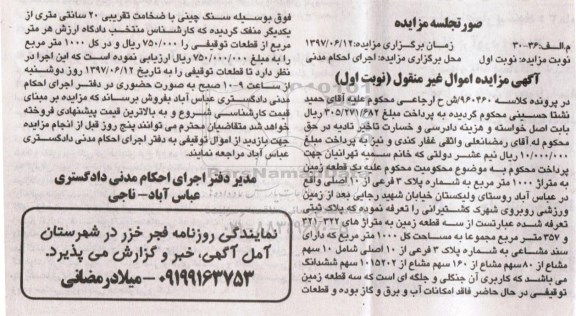 صورتجلسه مزایده
م.الف:۳۰۰۳۶
زمان برگزاری مزایده:۱۳۹۷/۰۶/۱۲
نوبت مزایده: نوبت اول
محل برگزاری مزایده: اجرای احکام مدنی
آگهی مزایده اموال غیر منقول (نوبت اول)
در پرونده کلاسه ۹۶۰۴۶۰/ش ح ارجاعی محکوم علیه آقای حمید
نشتا حسینی محکوم گردیده به پرداخت مبلغ ۳۰۵/۲۷۱/۶۸۲ ریال
بابت اصل خواسته و هزینه دادرسی و خسارت تاخیر تادیه در حق
محکوم له آقای رمضانعلی واثقی غفار کندی و نیز به پرداخت مبلغ
۱۰/۰۰۰/۰۰۰ ریال نیم عشر دولتی که خانم سمیه تهرانیان جهت
پرداخت محکوم به موضوع محکومیت محکوم علیه یک قطعه زمین
به متراژ ۱۰۰۰ متر مربع به شماره پلاک ۳ فرعی از ۱۰ اصلی واقع
در عباس آباد روستای ولیکستان خیابان شهید رجایی بعد از زمین
ورزشی روبروی شهرک کشتیرانی را تعرفه نموده که پلاک ثبتی
تعرفه شده عبارتست از سه قطعه زمین به متراژ های ۳۲۲-۳۲۱
و ۳۵۷ متر مربع مجموعا به مساحت کل ۱۰۰۰ متر مربع که دارای
سند مشاعی به شماره پلاک ۳ فرعی از ۱۰ اصلی شامل ۱۰ سهم
مشاع از ۸۰ سهم مشاع از ۱۶۰ سهم مشاع از ۱۰۱۵۲۰۲ سهم ششدانگ
می باشد که کاربری آن جنگلی و جلگه ای است که سه قطعه زمین
توقیفی در حال حاضر فاقد امکانات آب و برق و گاز بوده و قطعات
فوق بوسیله سنگ چینی با ضخامت تقریبی ۲۰ سانتی متری از
یکدیگر منفک گردیده که کارشناس منتخب دادگاه ارزش هر متر
مربع از قطعات توقیفی را ۷۵۰/۰۰۰ ریال و در کل ۱۰۰۰ متر مربع
را به مبلغ ۷۵۰/۰۰۰/۰۰۰ ریال ارزیابی نموده است که این اجرا در
نظر دارد تا قطعات توقیفی را به تاریخ ۱۳۹۷/۰۶/۱۲ روز دوشنبه
از ساعت ۹-۱۰ صبح به صورت حضوری در دفتر اجرای احکام
مدنی دادگستری عباس آباد بفروش برساند که مزایده بر مبنای
قیمت کارشناسی شروع و به بالاترین قیمت پیشنهادی فروخته
خواهد شد متقاضیان محترم می توانند پنج روز قبل از انجام مزایده
جهت بازدید از اموال توقیفی به دفتر اجرای احکام مدنی دادگستری
عباس آباد مراجعه نمایند.
مدیر دفتر اجرای احکام مدنی دادگستری
عباس آباد- ناجی
نمایندگی روزنامه فجر خزر در شهرستان
آمل آگهی، خبر و گزارش می پذیرد.
۰۹۱۹۹۱۶۳۷۵۳-میلادرمضانی